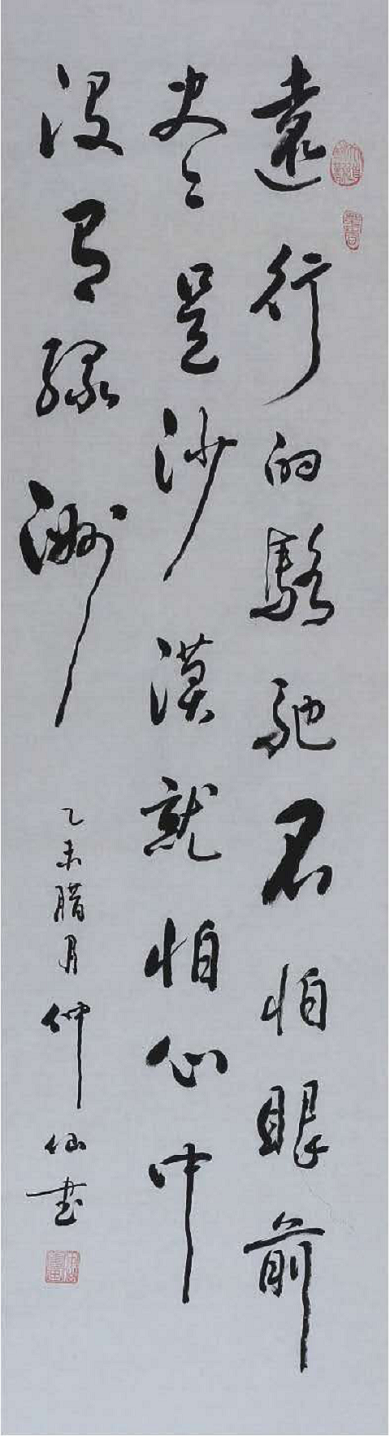 遠行的駱駝不怕眼前
尽是沙漠就怕心中
没有綠洲
乙未腊月仲仙書